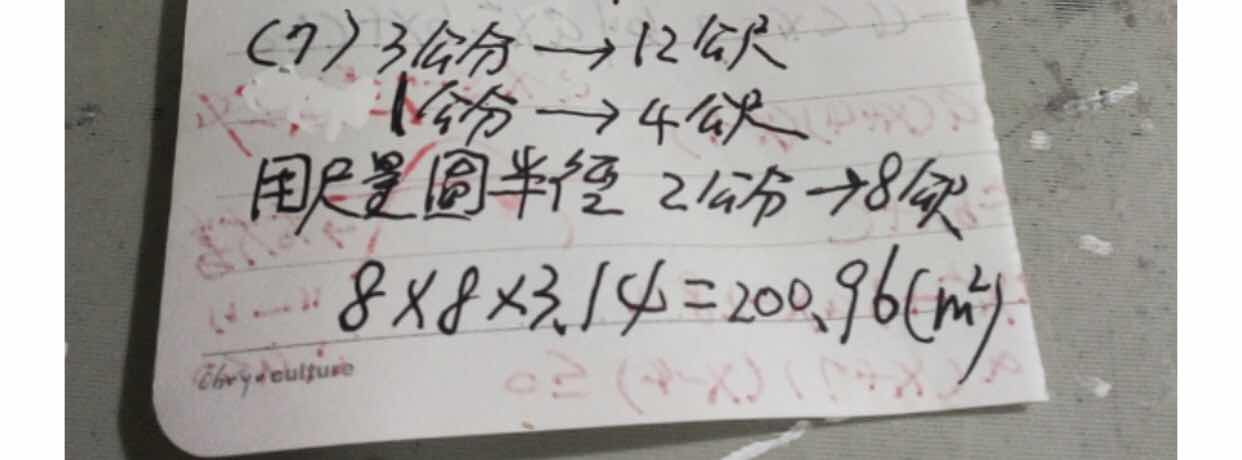 (7) 3公分 → 12公尺
1公分 → 4公尺
用尺量圓半徑 2公分 → 8公尺
8×8×3.14=200.96(m²)
culture